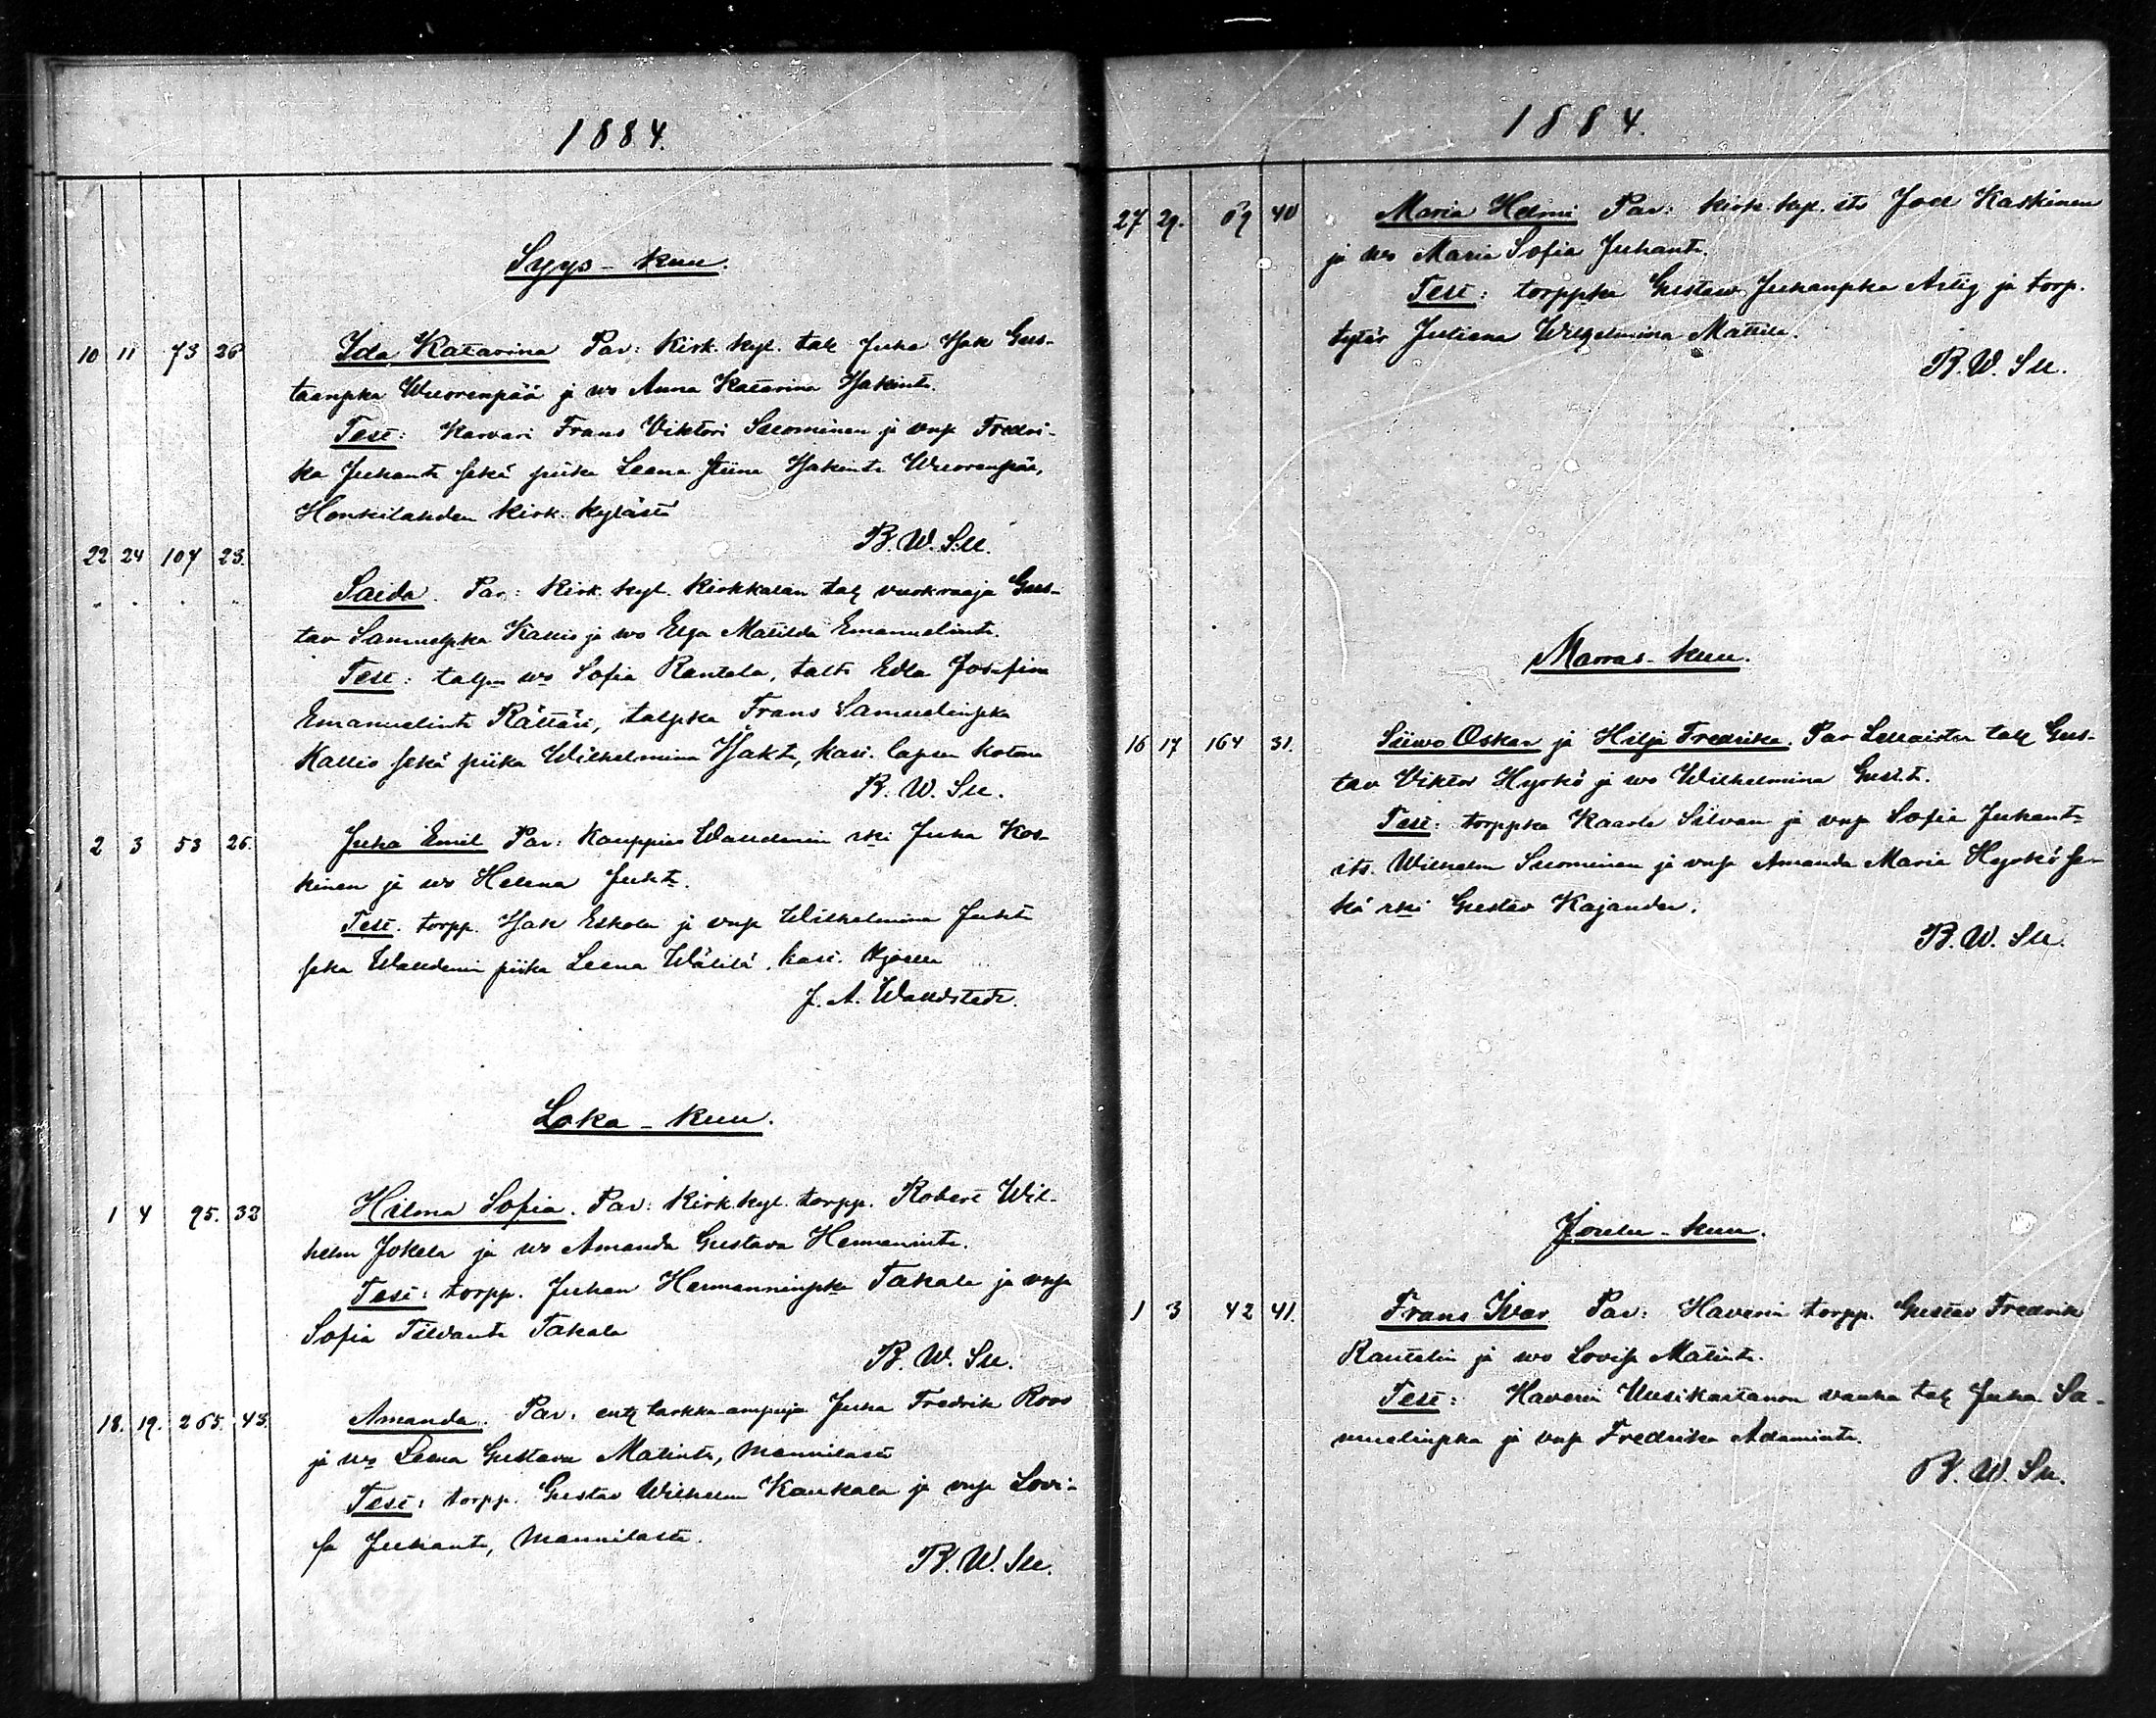 1884.
Syys-kuu.
10 11 73 26 Ida Katarina Par: Kirk. kyl. tal Juha Isak Gus-
taanpka Wuorenpää ja wo Anna Katarina Isakint.
Test: Karvari Frans Viktori Suominen ja vmp Fredri-
ka Juhant sekä piika Leena Stiina Isakint Wuorenpää,
Honkilahden kirk. kylästä
B. W. Su.
22 24 107 23. Saida. Par: Kirk. kyl. Kirkkalan tal vuokraaja Gus-
tav Samuelpka Kallio ja wo Elga Matilda Emanuelint.
Test: talpn wo Sofia Rantala, talt Edla Josefina
Emanuelint Rättäri, talpka Frans Samuelinpka
Kallio sekä piika Wilhelmina Isakt, kasi. lapsen kotona
B. W. Su.
2 3 53 26. Juha Emil Par: Kauppias rki Juha Kos-
kinen ja wo Helena Juht.
Test. torpp. Isak Eskola ja vmp Wilhelmina Juht
seka piika Leena Wälilä, kasi.
J. A. Wallstedt.
Loka-kuu.
1 4 95. 33 Hilma Sofia. Par: Kirk. kyl. torpp. Robert Wil-
helm Jokela ja wo Amanda Gustava Hermanint.
Test: torpp. Juhan Hermanninpka Takala ja vmp
Sofia Takala
B. W. Su.
18. 19. 265. 43. Amanda. Par: ent tarkka-ampuja Juha Fredrik Roos
ja wo Leena Gustava Matint, Mannilasta
Test: torpp. Gustav Wilhelm Kaukala ja vmp Lovi-
sa Juhant, Mannilasta.
B. W. Su.
1884.
27 29. 69 40 Maria Helmi Par: Kirk. kyl. its Joel Kaskinen
ja wo Maria Sofia Juhant.
Test: torppka Gustaw Juhanpka Artig ja torp.
tytär Juliana Wilhelmina Mattila.
B. W. Su.
Marras-kuu.
16 17 164 31. Siiwo Oskar ja Hilja Fredrika. Par tal Gus-
tav Viktor Hyrkö ja wo Wilhelmina Gust.t.
Test: torppka Kaarle Silvan ja vmp Sofia Juhant
its. Wilhelm Suominen ja vmp Amanda Maria Hyrkö se-
kä rki Gustav Kajander.
B. W. Su.
Joulu-kuu.
1 3 42 41. Frans Ivar Par: Haverin torpp. Gustav Fredrik
Rantalin ja wo Lovisa Matint.
Test: Haverin Uusikartanon vanha tal Juha Sa-
muelinpka ja vmp Fredrika Adamint.
B. W. Su.